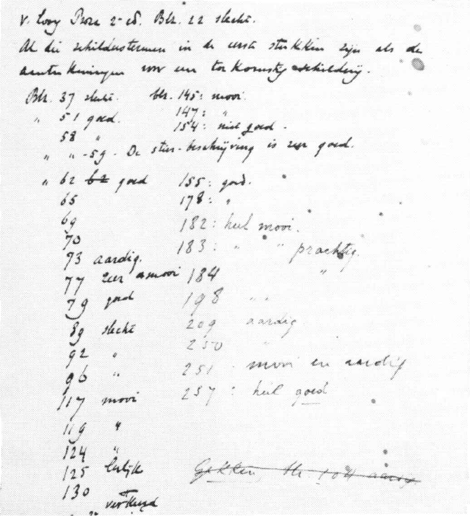 v. Looy Proza 2e dr. Blz. 22 slecht.
Al die schilderstermen in de eerste stukken zijn als de
aanteekeningen voor een toekomstig schilderij.
Blz. 37 slecht. blz. 145: mooi.
" 51 goed. 147: "
58 " 154: niet goed.
" " -59. De stier-beschrijving is zeer goed.
" 62 62 goed 155: goed.
65 178: "
69 182: heel mooi.
70 183: " " prachtig.
73 aardig.
77 zeer mooi 184 "
79 goed 198 " "
89 slecht 209 aardig
92 " 250 "
96 " 251 mooi en aardig
117 mooi 257: heel goed
119 "
124 "
125 lelijk Gekken, blz 104
130